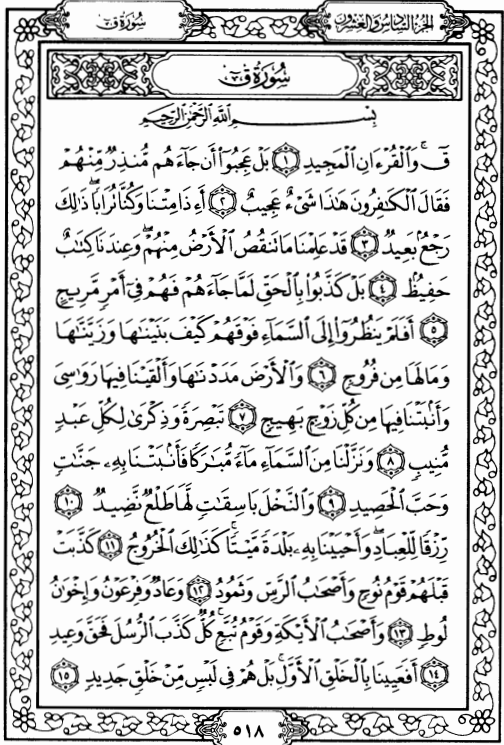 سُورَةُ ق
الجُزْءُ السَّادِسُ وَالعِشْرُونَ
سُورَةُ قٓ
بِسْمِ ٱللَّهِ ٱلرَّحْمَٰنِ ٱلرَّحِيمِ
قٓۚ وَٱلْقُرْءَانِ ٱلْمَجِيدِ ١ بَلْ عَجِبُوٓا۟ أَن جَآءَهُم مُّنذِرٌ مِّنْهُمْ
فَقَالَ ٱلْكَٰفِرُونَ هَٰذَا شَىْءٌ عَجِيبٌ ٢ أَءِذَا مِتْنَا وَكُنَّا تُرَابًاۖ ذَٰلِكَ
رَجْعٌۢ بَعِيدٌ ٣ قَدْ عَلِمْنَا مَا تَنقُصُ ٱلْأَرْضُ مِنْهُمْۖ وَعِندَنَا كِتَٰبٌ
حَفِيظٌۢ ٤ بَلْ كَذَّبُوا۟ بِٱلْحَقِّ لَمَّا جَآءَهُمْ فَهُمْ فِىٓ أَمْرٍ مَّرِيجٍ
٥ أَفَلَمْ يَنظُرُوٓا۟ إِلَى ٱلسَّمَآءِ فَوْقَهُمْ كَيْفَ بَنَيْنَٰهَا وَزَيَّنَّٰهَا
وَمَا لَهَا مِن فُرُوجٍ ٦ وَٱلْأَرْضَ مَدَدْنَٰهَا وَأَلْقَيْنَا فِيهَا رَوَٰسِىَ
وَأَنۢبَتْنَا فِيهَا مِن كُلِّ زَوْجٍۭ بَهِيجٍ ٧ تَبْصِرَةً وَذِكْرَىٰ لِكُلِّ عَبْدٍ
مُّنِيبٍ ٨ وَنَزَّلْنَا مِنَ ٱلسَّمَآءِ مَآءً مُّبَٰرَكًا فَأَنۢبَتْنَا بِهِۦ جَنَّٰتٍ
وَحَبَّ ٱلْحَصِيدِ ٩ وَٱلنَّخْلَ بَاسِقَٰتٍ لَّهَا طَلْعٌ نَّضِيدٌ ١٠
رِّزْقًا لِّلْعِبَادِۖ وَأَحْيَيْنَا بِهِۦ بَلْدَةً مَّيْتًاۚ كَذَٰلِكَ ٱلْخُرُوجُ ١١ كَذَّبَتْ
قَبْلَهُمْ قَوْمُ نُوحٍ وَأَصْحَٰبُ ٱلرَّسِّ وَثَمُودُ ١٢ وَعَادٌ وَفِرْعَوْنُ وَإِخْوَٰنُ
لُوطٍ ١٣ وَأَصْحَٰبُ ٱلْأَيْكَةِ وَقَوْمُ تُبَّعٍۚ كُلٌّ كَذَّبَ ٱلرُّسُلَ فَحَقَّ وَعِيدِ
١٤ أَفَعَيِينَا بِٱلْخَلْقِ ٱلْأَوَّلِۚ بَلْ هُمْ فِى لَبْسٍ مِّنْ خَلْقٍ جَدِيدٍ ١٥
٥١٨